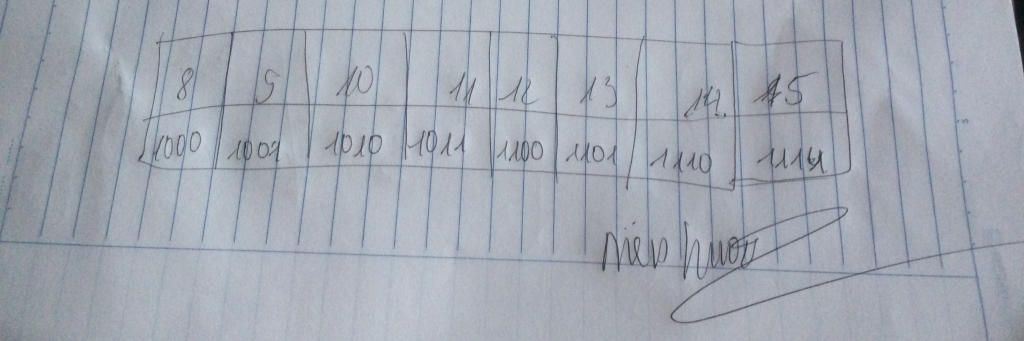 8 9 10 11 12 13 14 15
1000 1001 1010 1011 1100 1101 1110 1111